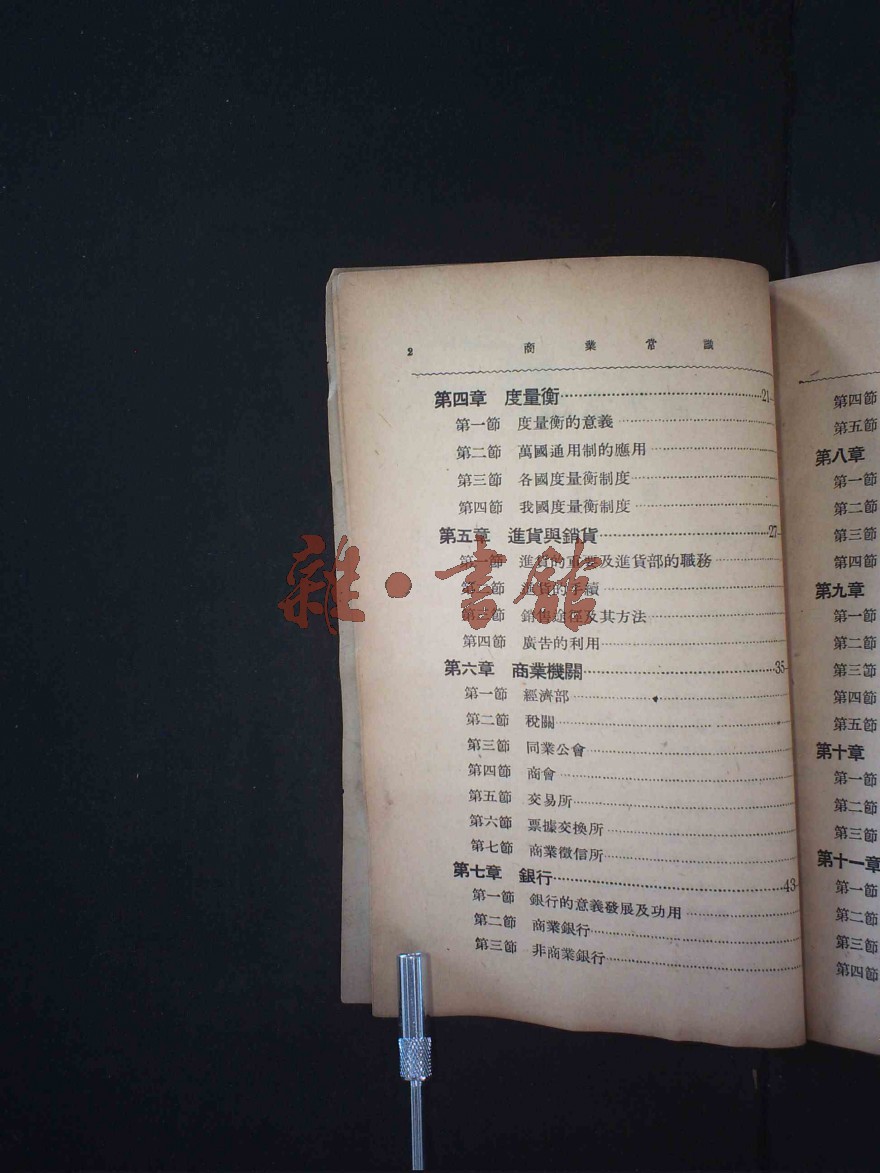 2 商業常識
第四章 度量衡……21
第一節 度量衡的意義
第二節 萬國通用制的應用
第三節 各國度量衡制度
第四節 我國度量衡制度
第五章 進貨與銷貨……27
第一節 進貨的重要及進貨部的職務
第二節 進貨的手續
第三節 銷售途徑及其方法
第四節 廣告的利用
第六章 商業機關……35
第一節 經濟部
第二節 稅關
第三節 同業公會
第四節 商會
第五節 交易所
第六節 票據交換所
第七節 商業徵信所
第七章 銀行……43
第一節 銀行的意義發展及功用
第二節 商業銀行
第三節 非商業銀行
第四節
第五節
第八章
第一節
第二節
第三節
第四節
第九章
第一節
第二節
第三節
第四節
第五節
第十章
第一節
第二節
第三節
第十一章
第一節
第二節
第三節
第四節
雜·書館